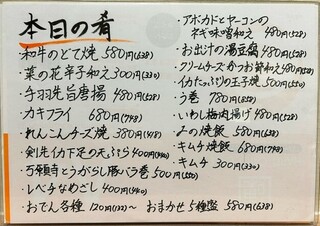 本日の肴
・和牛のどて焼 580円(638)
・菜の花辛子和え 300円(330)
・手羽先旨唐揚 480円(528)
・カキフライ 680円(748)
・れんこんチーズ焼 380円(418)
・剣先イカ下足の天ぷら 400円(440)
・万願寺とうがらし豚バラ巻 500円(550)
・レバチなめざし 400円(440)
・おでん各種 120円(132)〜 おまかせ5種盛 580円(638)
・アボカドとヤーコンの
ネギ味噌和え 480円(528)
・お出汁の湯豆腐 480円(528)
・クリームチーズかつお節和え 480円(528)
・イカたっぷりの玉子焼 500円(550)
・う巻 780円(858)
・いわし梅肉揚げ 480円(528)
・みの焼飯 580円(638)
・キムチ焼飯 680円(748)
・キムチ 300円(330)